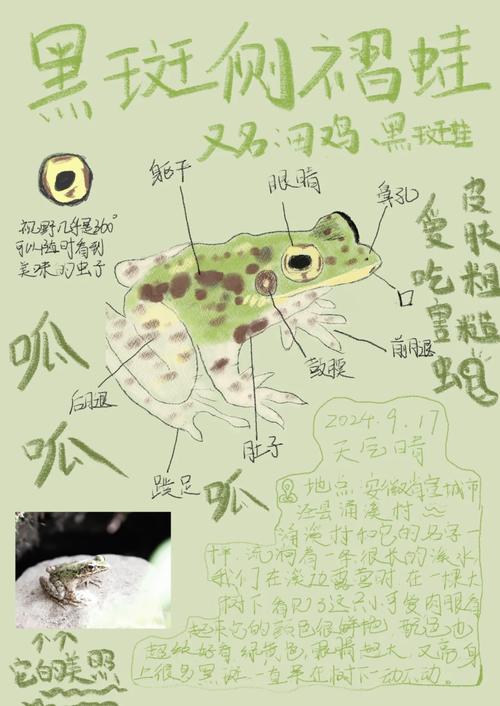 黑斑侧褶蛙
又名:田鸡、黑斑蛙
躯干
眼睛
鼻孔
视野几乎是360°
可以随时看到
美味的虫子
皮肤粗糙
爱吃害虫
口
前腿
鼓膜
后腿
肚子
蹼足
呱
呱
呱
2024.9.17
天气晴
地点:安徽省宣城市
泾县涌溪村~
涌溪村和它的名字一
样,流淌着一条很长的溪水
我们在溪边露营时,在一块大
树下看见了这只小可爱,肉眼看
起来它的颜色很鲜艳,配色也
超级好看,绿黄色,眼睛超大,又高,身
上很多黑斑,一直呆在树下一动不动。
个个
它的美照